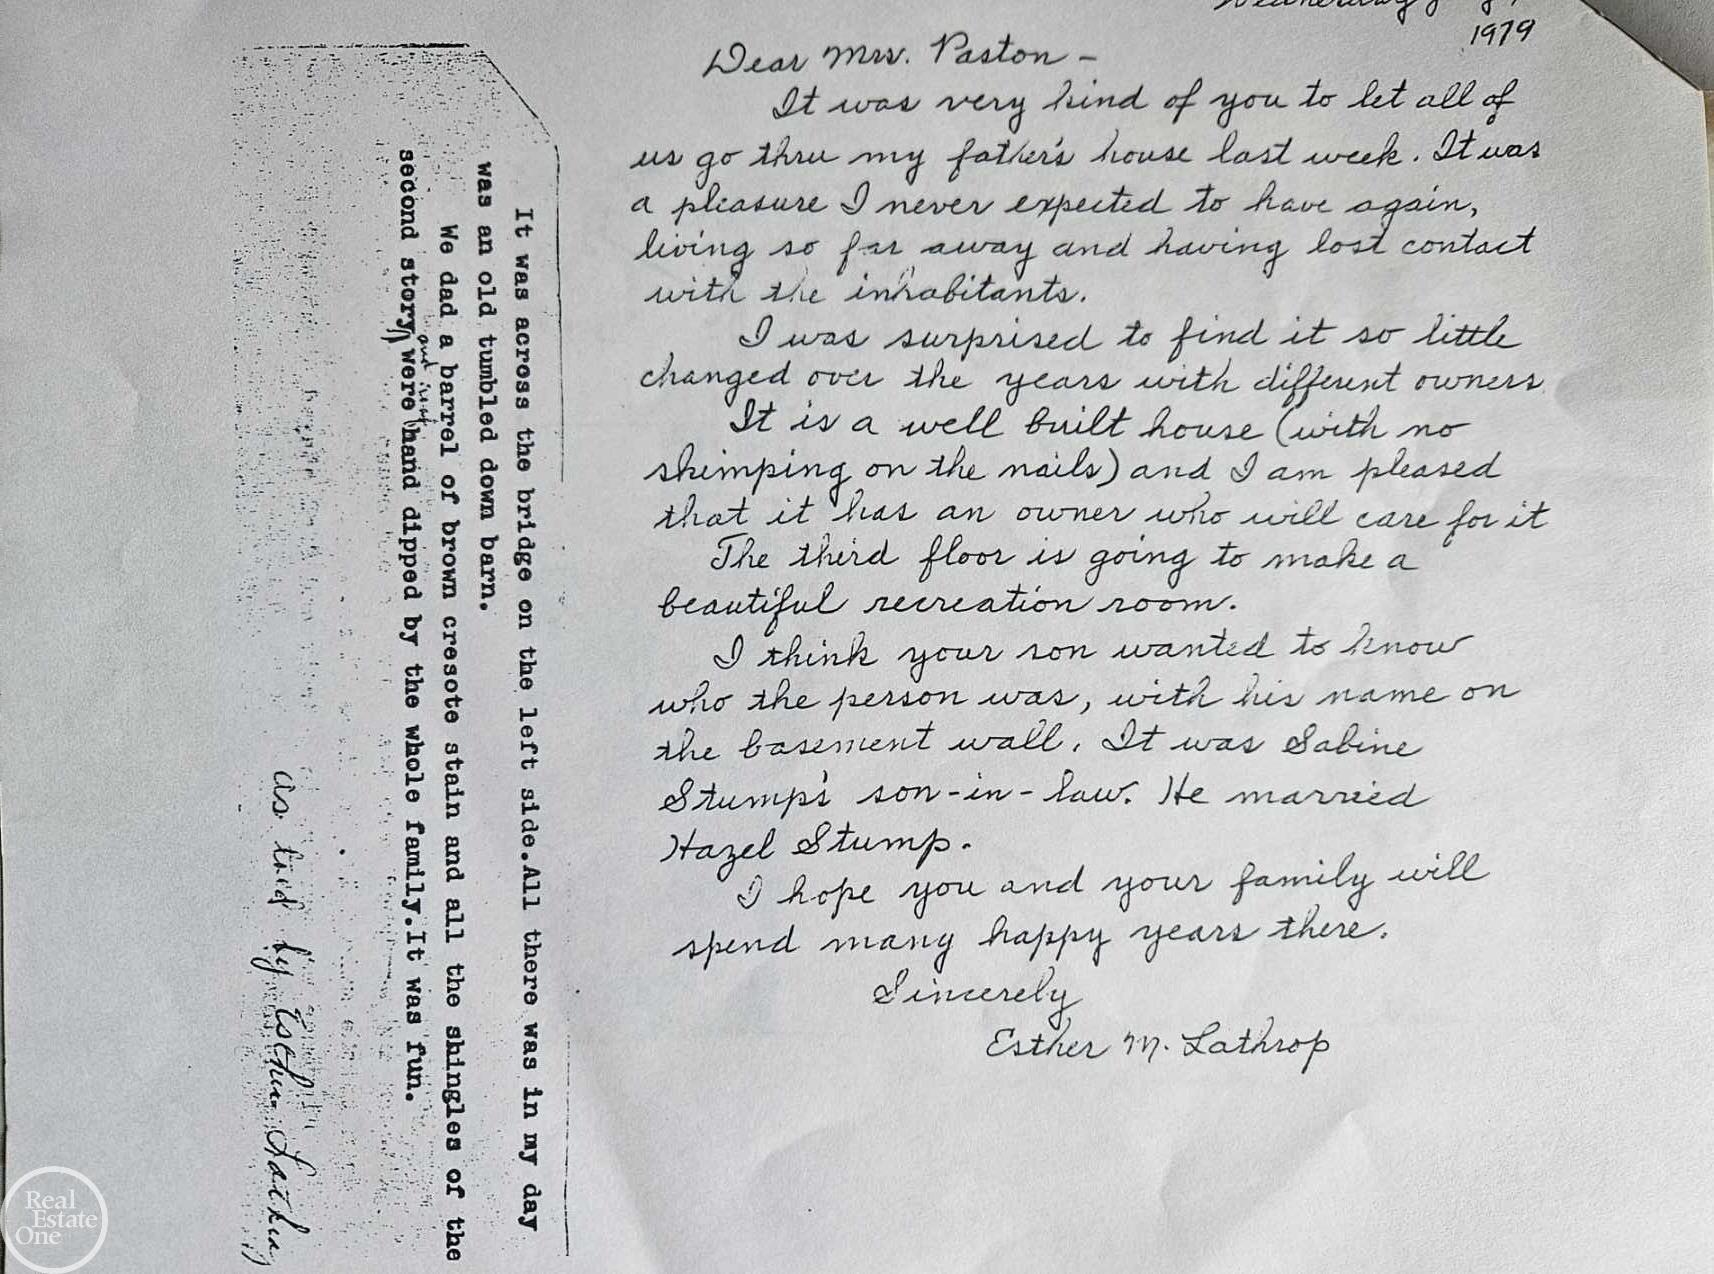 1979
Dear Mrs. Paston -
It was very kind of you to let all of
us go thru my father's house last week. It was
a pleasure I never expected to have again,
living so far away and having lost contact
with the inhabitants.
I was surprised to find it so little
changed over the years with different owners
It is a well built house (with no
skimping on the nails) and I am pleased
that it has an owner who will care for it
The third floor is going to make a
beautiful recreation room.
I think your son wanted to know
who the person was, with his name on
the basement wall. It was Sabine
Stump's son-in-law. He married
Hazel Stump.
I hope you and your family will
spend many happy years there.
Sincerely
Esther M. Lathrop
It was across the bridge on the left side.All there was in my day
was an old tumbled down barn.
We dad a barrel of brown cresote stain and all the shingles of the
second story were hand dipped by the whole family.It was fun.
as told by Esther
Real
Estate
One